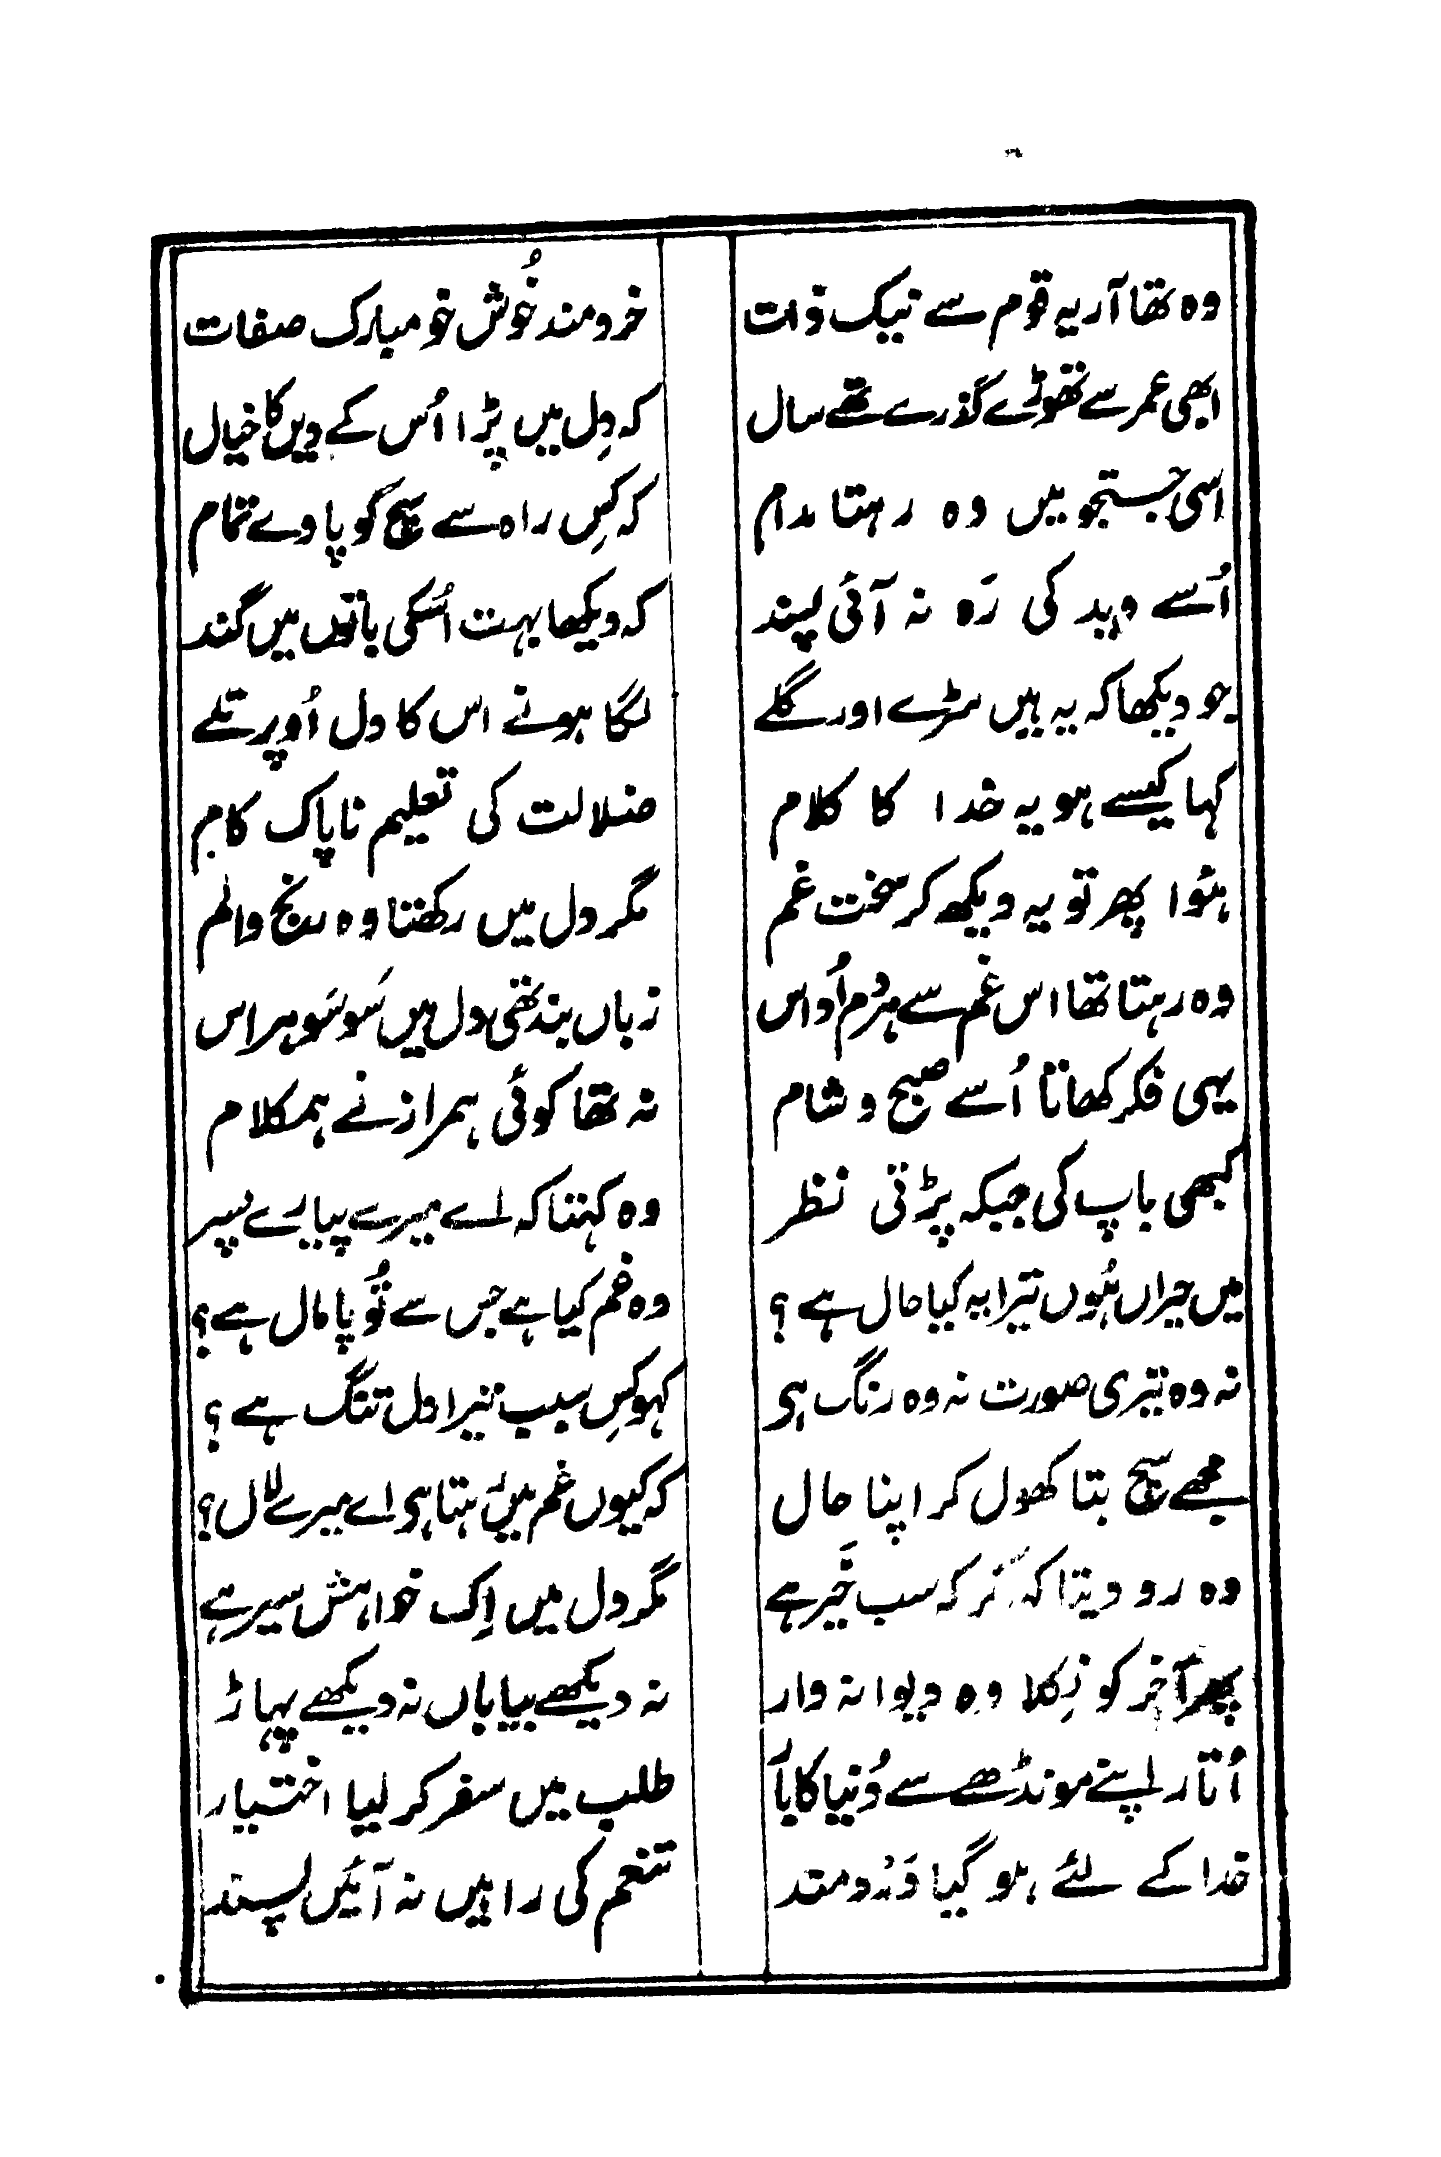 وہ تھا آریہ قوم سے نیک ذات خردمند خُوش خو مبارک صفات
ابھی عمر سے تھوڑے گذرے تھے سال کہ دِل میں پڑا اُس کے دیں کا خیال
اسی جستجو میں وہ رہتا مدام کہ کِس راہ سے سچ کو پاوے تمام
اُسے وید کی رَہ نہ آئی پسند کہ دیکھا بہت اُسکی باتوں میں گند
جو دیکھا کہ یہ ہیں سڑے اور گلے لگا ہونے اس کا دل اُوپر تلے
کہا کیسے ہو یہ خدا کا کلام ضلالت کی تعلیم ناپاک کام
ہئوا پھر تو یہ دیکھ کر سخت غم مگر دل میں رکھتا وہ رنج و الم
وہ رہتا تھا اس غم سے ہردم اُداس زباں بند تھی دل میں سَو سَو ہراس
یہی فکر کھاتا اُسے صبح و شام نہ تھا کوئی ہمراز نے ہمکلام
کبھی باپ کی جبکہ پڑتی نظر وہ کہتا کہ اے میرے پیارے پسر
میں حیراں ہُوں تیرا یہ کیا حال ہے ؟ وہ غم کیا ہے جس سے تُو پامال ہے؟
نہ وہ تیری صورت نہ وہ رنگ ہی کہو کِس سبب تیرا دل تنگ ہے ؟
مجھے سچ بتا کھول کر اپنا حال کہ کیوں غم میں رہتا ہی اے میرے لال؟
وہ رو دیتا کہہ کر کہ سب خَیر ہے مگر دل میں اِک خواہش سیر ہے
پھر آخر کو نِکلا وہ دیوانہ وار نہ دیکھے بیاباں نہ دیکھے پہاڑ
اُتار اپنے مونڈھے سے دُنیا کا بار طلب میں سفر کر لیا اختیار
خدا کے لئے ہو گیا دَردمند تنعم کی راہیں نہ آئیں پسند